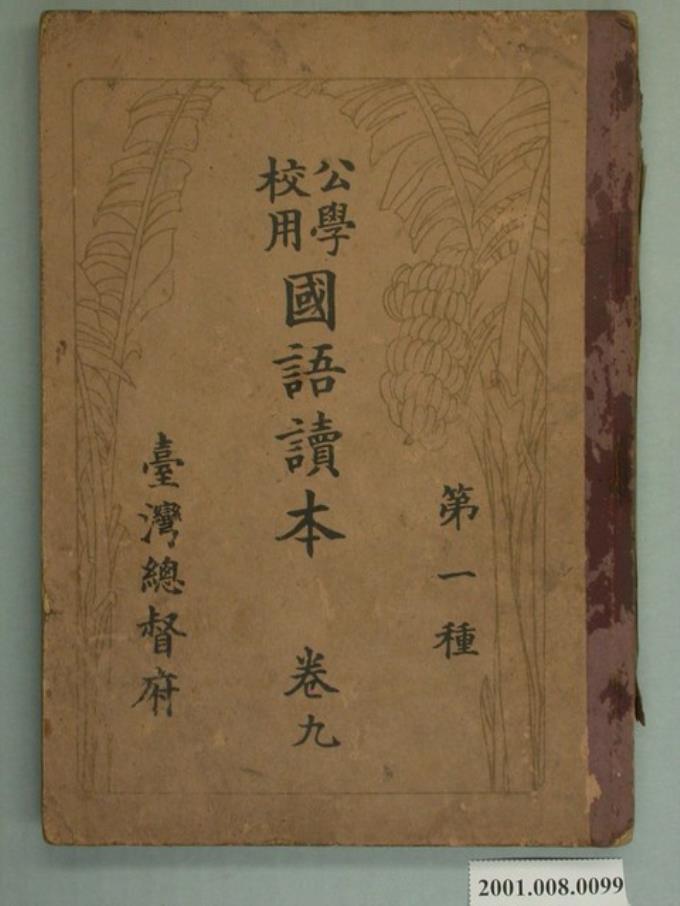 第一種
公學校用國語讀本 卷九
臺灣總督府
2001.008.0099